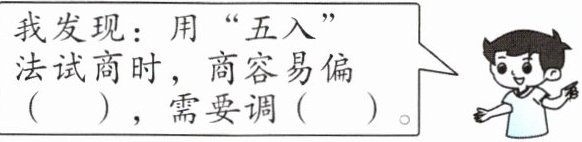 我发现：用“五入”
法试商时，商容易偏
（　　），需要调（　　）。